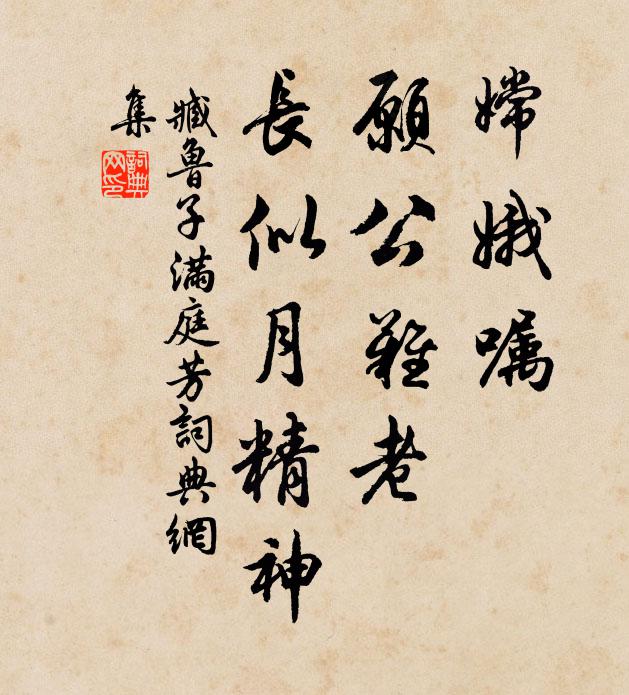 嫦娥嘱
願公難老
長似月精神
臧魯子滿庭芳詞典網
集
詞典网印